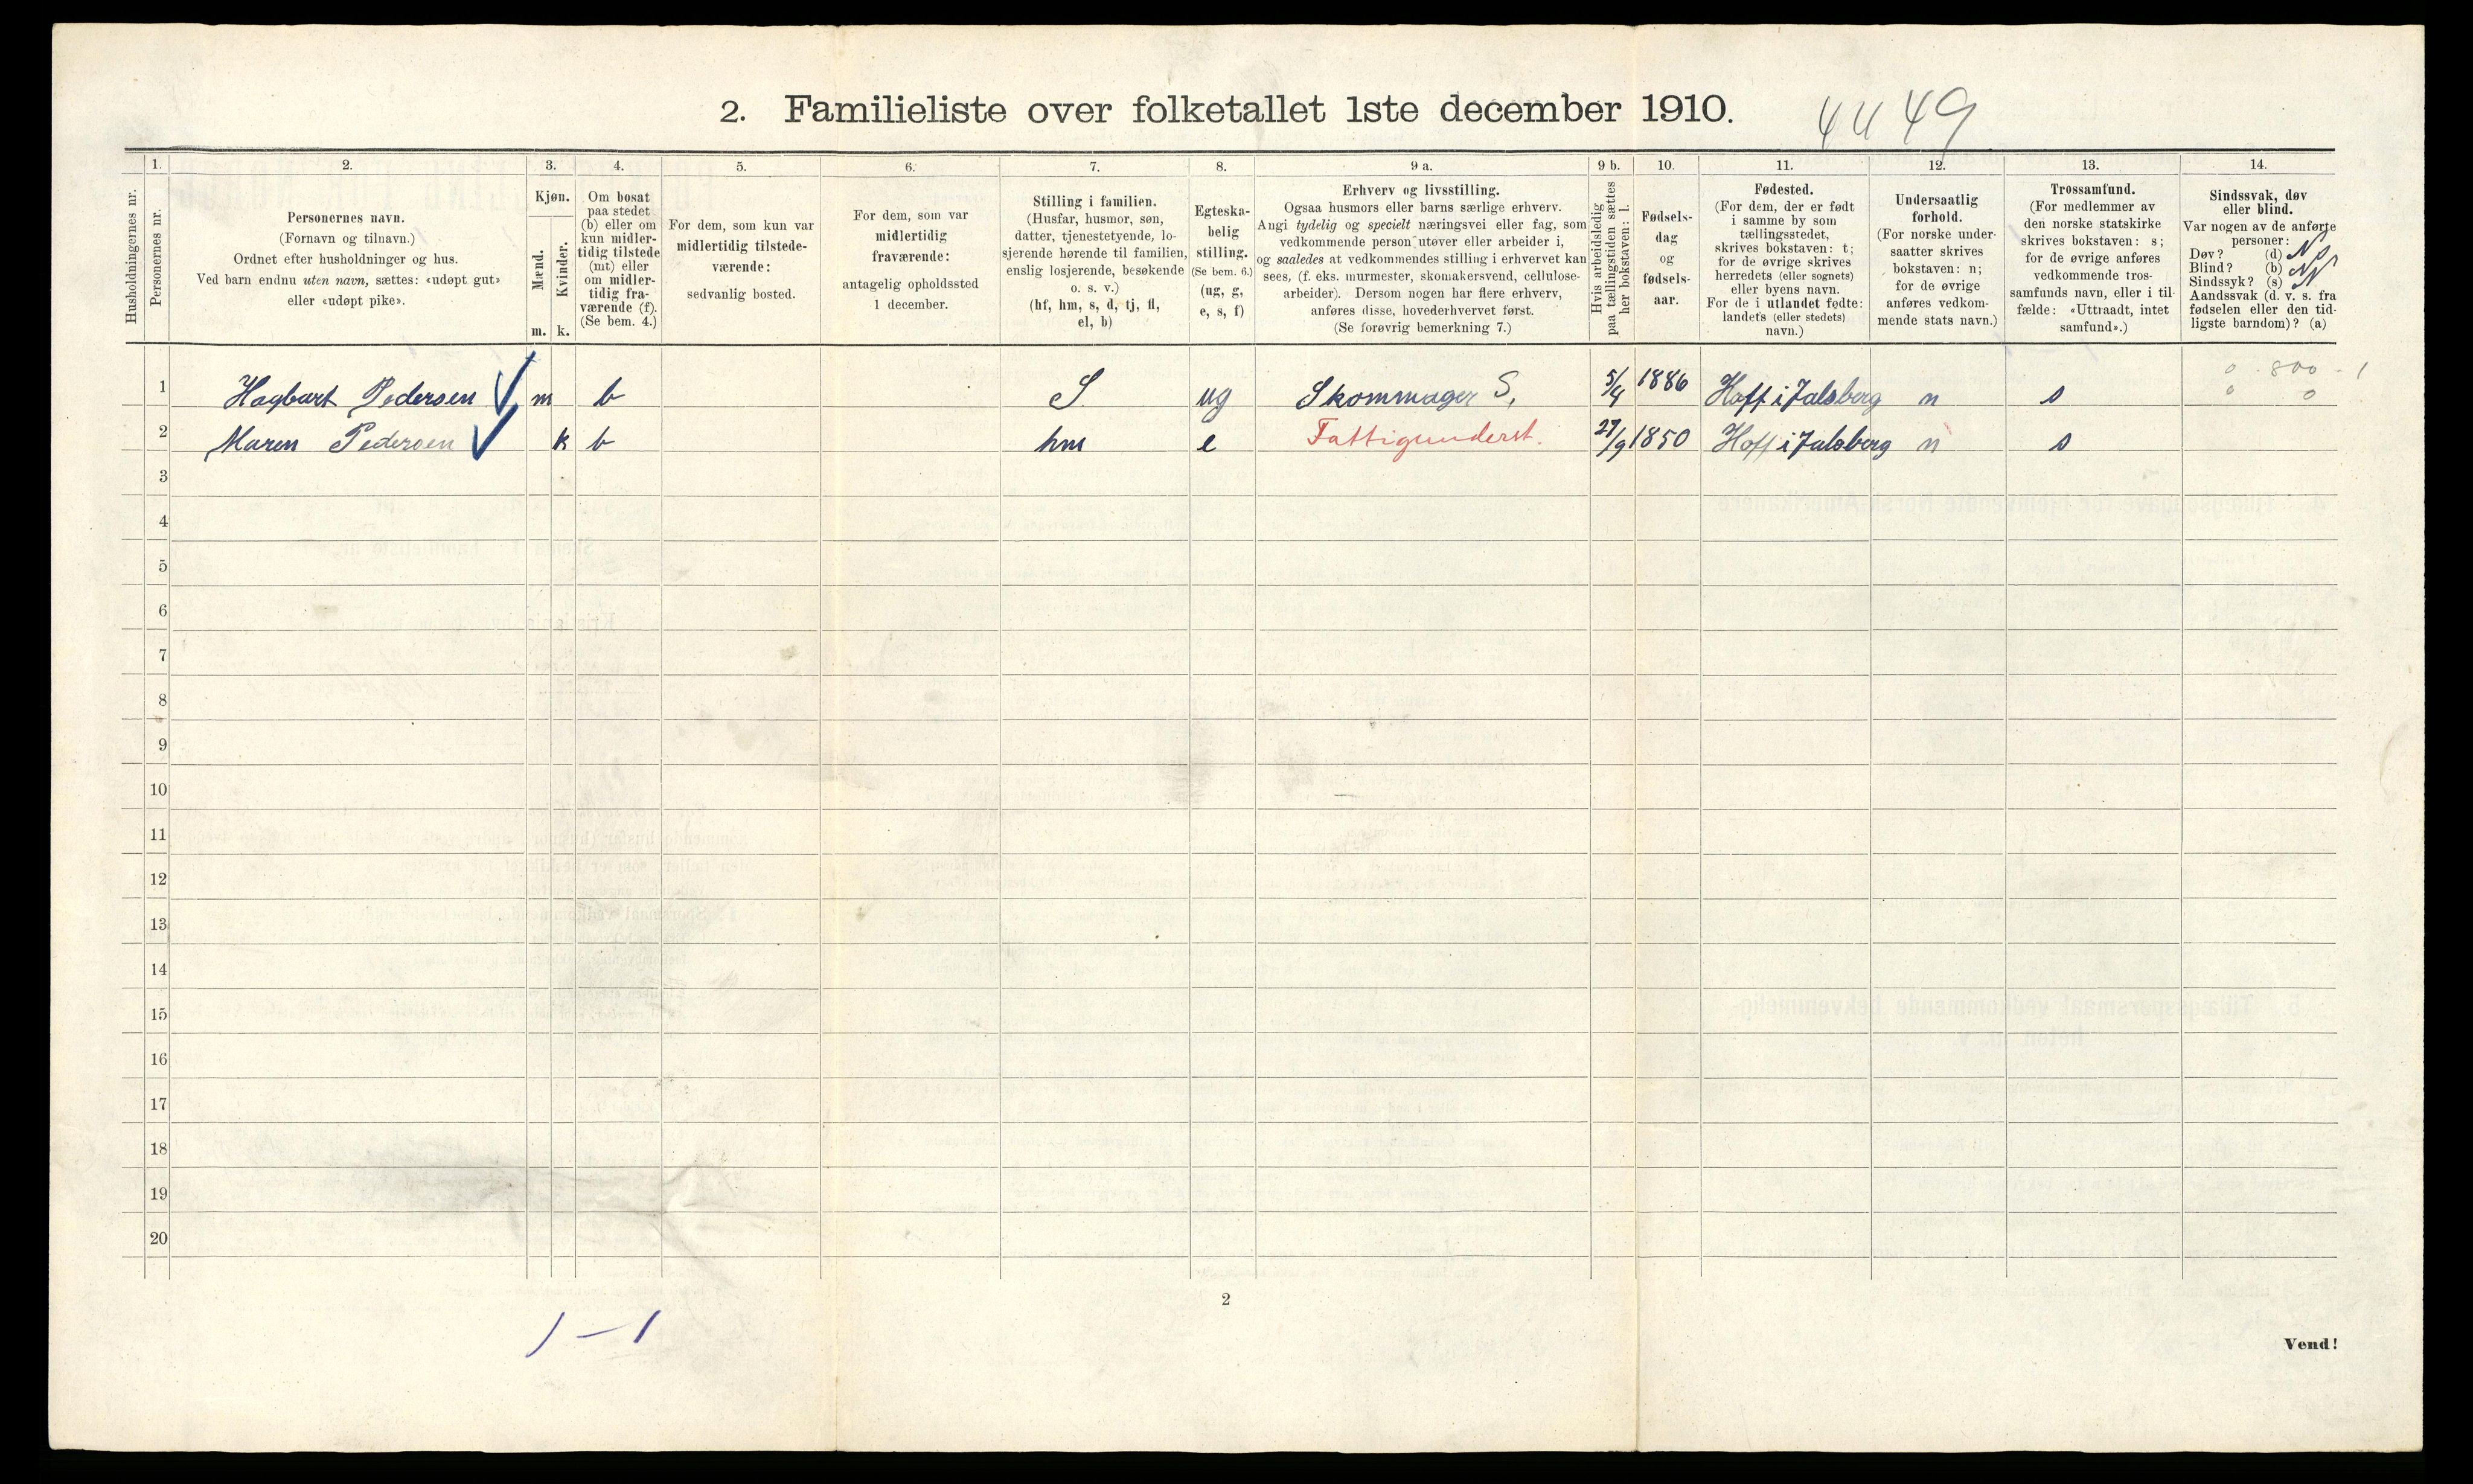 2. Familieliste over folketallet 1ste december 1910.
4449
Husholdningernes nr.
1.
Personernes nr.
2.
Personernes navn.
(Fornavn og tilnavn.)
Ordnet efter husholdninger og hus.
Ved barn endnu uten navn, sættes: «udøpt gut»
eller «udøpt pike».
3.
Kjøn.
Mænd.
Kvinder.
m. k.
4.
Om bosat
paa stedet
(b) eller om
kun midler-
tidig tilstede
(mt) eller
om midler-
tidig fra-
værende (f).
(Se bem. 4.)
5.
For dem, som kun var
midlertidig tilstede-
værende:
sedvanlig bosted.
6.
For dem, som var
midlertidig
fraværende:
antagelig opholdssted
1 december.
7.
Stilling i familien.
(Husfar, husmor, søn,
datter, tjenestetyende, lo-
sjerende hørende til familien,
enslig losjerende, besøkende
o. s. v.)
(hf, hm, s, d, tj, fl,
el, b)
8.
Egteska-
belig
stilling.
(Se bem. 6.)
(ug, g,
e, s, f)
9 a.
Erhverv og livsstilling.
Ogsaa husmors eller barns særlige erhverv.
Angi tydelig og specielt næringsvei eller fag, som
vedkommende person utøver eller arbeider i,
og saaledes at vedkommendes stilling i erhvervet kan
sees, (f. eks. murmester, skomakersvend, cellulose-
arbeider). Dersom nogen har flere erhverv,
anføres disse, hovederhvervet først.
(Se forøvrig bemerkning 7.)
9 b.
Hvis arbeidsledig
paa tællingstiden sættes
her bokstaven: l.
10.
Fødsels-
dag
og
fødsels-
aar.
11.
Fødested.
(For dem, der er født
i samme by som
tællingsstedet,
skrives bokstaven: t;
for de øvrige skrives
herredets (eller sognets)
eller byens navn.
For de i utlandet fødte:
landets (eller stedets)
navn.)
12.
Undersaatlig
forhold.
(For norske under-
saatter skrives
bokstaven: n;
for de øvrige
anføres vedkom-
mende stats navn.)
13.
Trossamfund.
(For medlemmer av
den norske statskirke
skrives bokstaven: s;
for de øvrige anføres
vedkommende tros-
samfunds navn, eller i til-
fælde: «Uttraadt, intet
samfund».)
14.
Sindssvak, døv
eller blind.
Var nogen av de anførte
personer:
Døv? (d)
Blind? (b)
Sindssyk? (s)
Aandssvak (d. v. s. fra
fødselen eller den tid-
ligste barndom)? (a)
1 Hagbart Pedersen m b S ug Skommager S, 5/4 1886 Hoff i Jalsberg n s
0 800 - 1
0 0
2 Maren Pedersen k b hm e Fattigunderst. 27/9 1850 Hoff i Jalsberg n s
3
4
5
6
7
8
9
10
11
12
13
14
15
16
17
18
19
20
2
1 – 1
Vend!